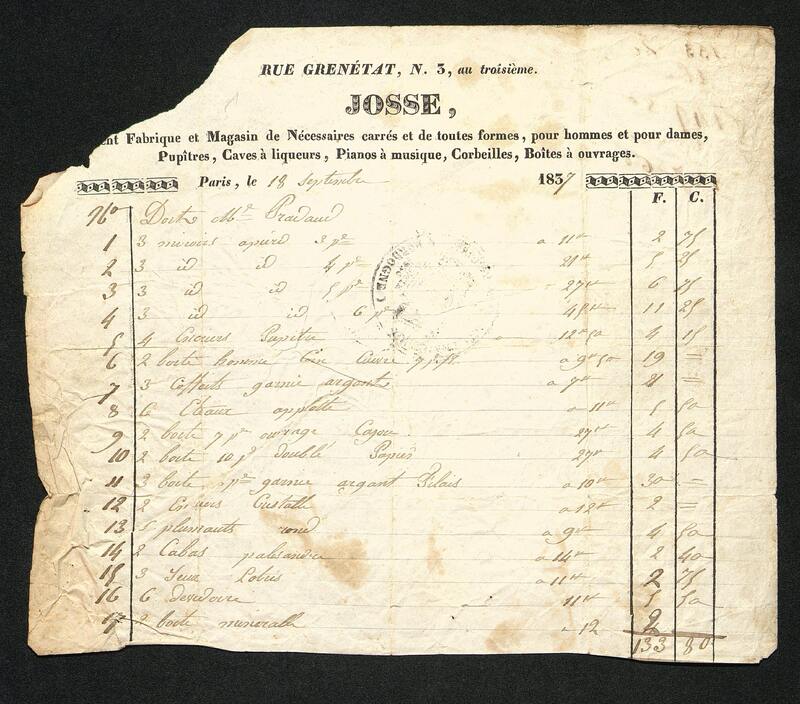 RUE GRENÉTAT, N. 3, au troisième.
JOSSE,
ent Fabrique et Magasin de Nécessaires carrés et de toutes formes, pour hommes et pour dames,
Pupîtres, Caves à liqueurs, Pianos à musique, Corbeilles, Boîtes à ouvrages.
Paris, le 18 Septembre 1837
F. C.
No Doit Mr Pradaud
1 3 miroirs 3 pce a 11 2 75
2 3 id id 4 pce 21 5 25
3 3 id id 5 pce 27 6 75
4 3 id id 6 pce 45 11 25
5 4 Encriers Pupitre a 12 50 4 15
6 2 boite homme Cuivre a 9 50 19 =
7 3 Coffrets garnie argent a 7 21 =
8 6 a 11 5 50
9 2 boite 7 pce ouvrage 27 4 50
10 2 boite 10 pce doublé Papier 27 4 50
11 3 boite pce garnie argant Filais a 10 30 =
12 2 Cristalle a 12 2 =
13 5 plumants rond a 9 4 50
14 2 Cabas palisandre a 14 2 40
15 3 Jeux Lotos a 11 2 75
16 6 devidoire 11 5 50
17 2 boite mineralle a 12 2
133 80
DORDOGNE